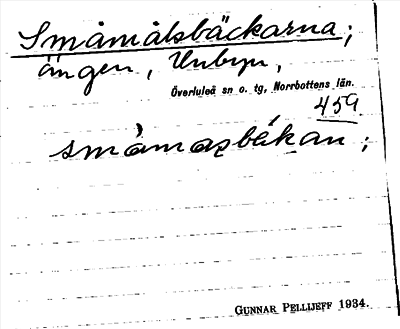 Småmålsbäckarna;
ängen, Unbyn,
Överluleå sn o. tg, Norrbottens län.
459
småmasbäkan;
GUNNAR PELLIJEFF 1934.